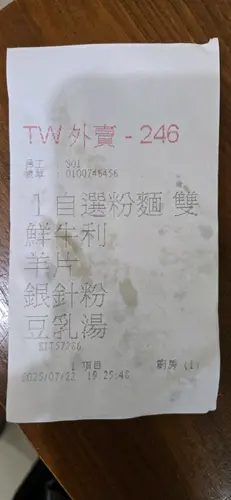 TW 外賣 - 246
員工 : S01
帳單 : 0100248456
1 自選粉麵 雙
鮮牛利
羊片
銀針粉
豆乳湯
1 項目 廚房 (1)
2025/07/22 19:25:48